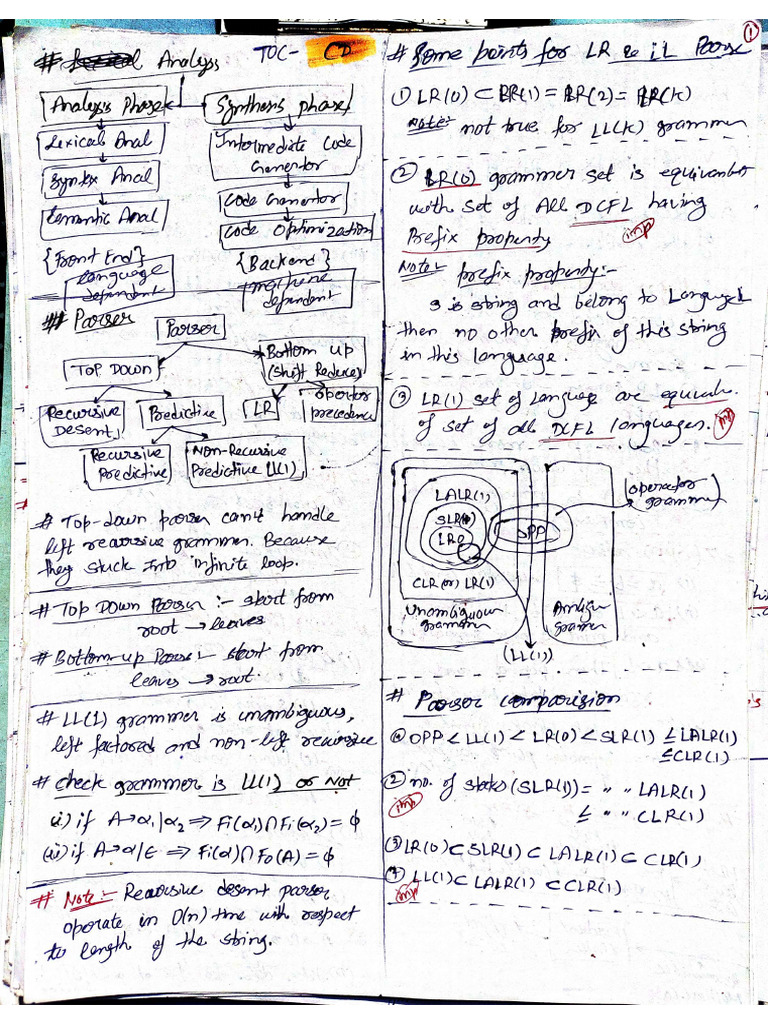 # Analysis TOC- CD
Analysis Phase Synthesis phase
Lexical Anal
Syntex Anal
Semantic Anal
{Front End}
Language dependent
Intermediate Code
Generator
Code Generator
Code Optimization
{Backend}
machine
dependent
## Parser
Parser
TOP DOWN
Bottom up
(Shift Reduce)
Recursive
Desent
Predictive
LR
operator
precedence
Recursive
Predictive
Non-Recursive
Predictive LL(1)
# Top-down parser can't handle
left recursive grammer. Because
they stuck into infinite loop.
# Top Down Parser :- start from
root → leaves
# Bottom-up Parser :- start from
leaves → root.
# LL(1) grammer is unambiguous,
left factored and non-left recursive
# check grammer is LL(1) or Not
(i) if A→α₁|α₂ ⇒ Fi(α₁)∩Fi(α₂) = ϕ
(ii) if A→α|ε ⇒ Fi(α)∩Fo(A) = ϕ
# Note:- Recursive desent parser
operate in O(n) time with respect
to length of the string.
①
# Some points for LR & LL Parse
① LR(0) ⊂ LR(1) = LR(2) = LR(K)
Note:- not true for LL(K) grammer
② LR(0) grammer set is equivalent
with set of All DCFL having
Prefix property imp
Note:- prefix property:-
s is string and belong to Language L
then no other prefix of this string
in this language.
③ LR(1) set of Language are equivale.
of set of all DCFL languages. imp
LALR(1)
SLR(1)
LR0
CLR(or) LR(1)
Unambiguous
grammer
OPP
Ambigu
gramer
operator
grammer
(LL(1))
# Parser comparision
① OPP < LL(1) < LR(0) < SLR(1) ≤ LALR(1)
≤ CLR(1)
② no. of states (SLR(1)) = " " LALR(1)
imp ≤ " " CLR(1)
③ LR(0) ⊂ SLR(1) ⊂ LALR(1) ⊂ CLR(1)
④ LL(1) ⊂ LALR(1) ⊂ CLR(1)
imp